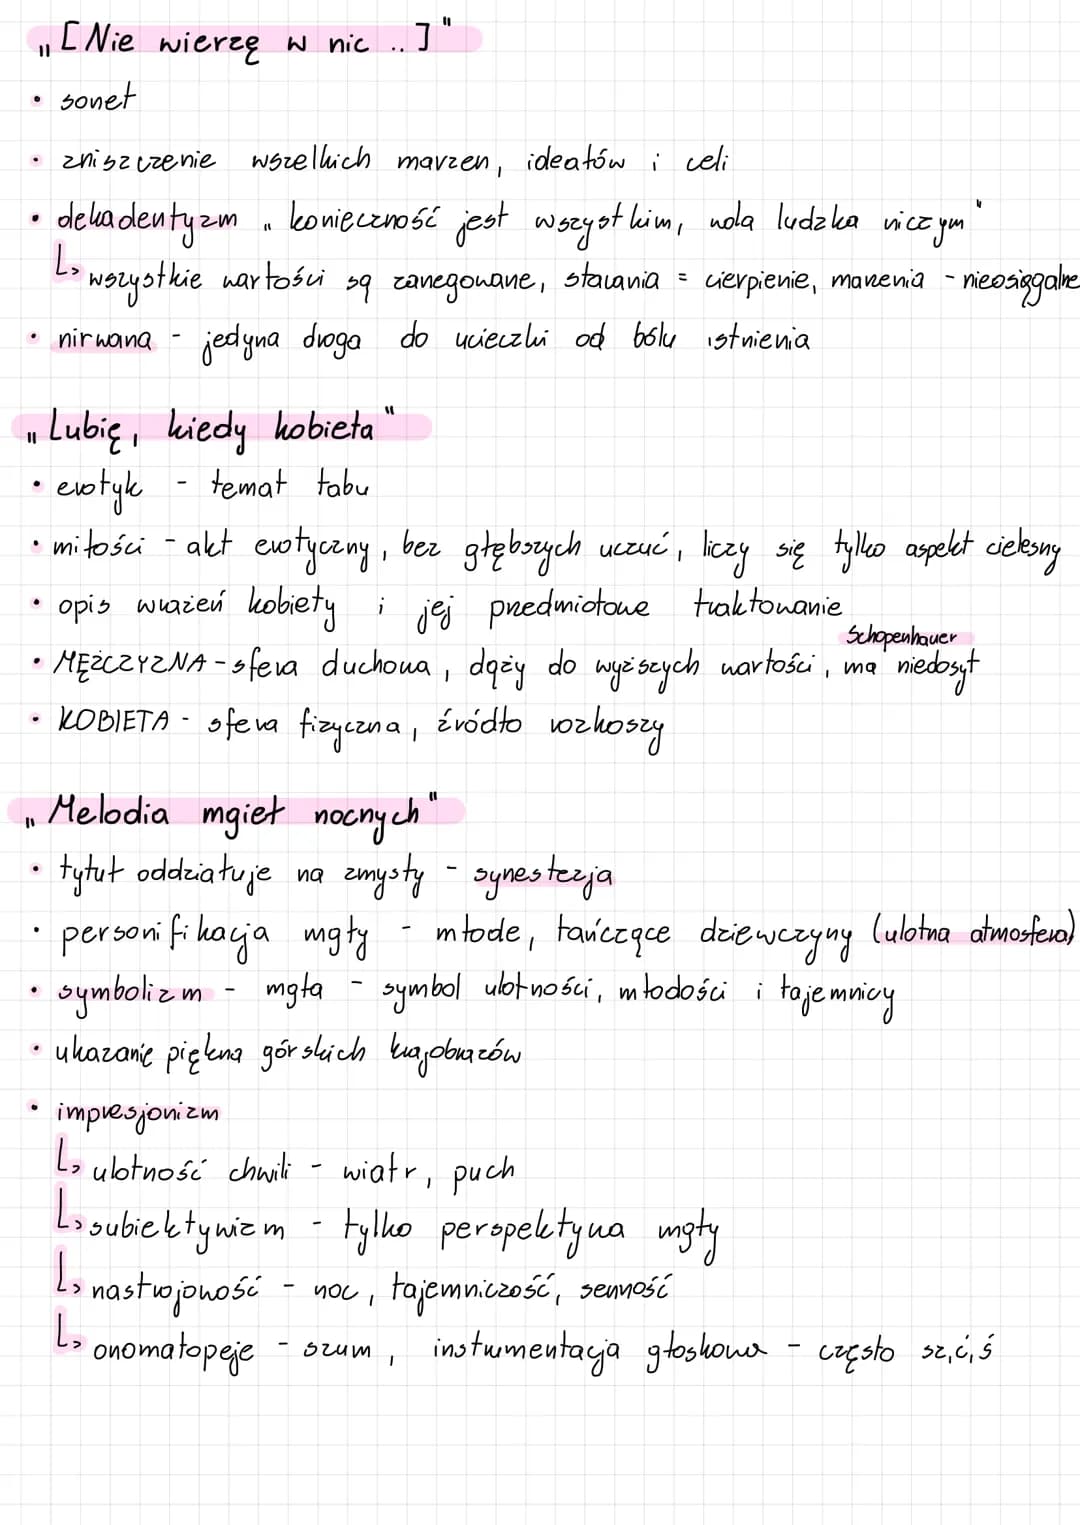 „[Nie wierzę w nic ..]"
• sonet
• zniszczenie wszelkich marzen, ideałów i celi
• dekadentyzm „konieczność jest wszystkim, wola ludzka niczym"
↳ wszystkie wartości są zanegowane, starania = cierpienie, marzenia - nieosiągalne
• nirwana - jedyna droga do ucieczki od bólu istnienia
„Lubię, kiedy kobieta"
• erotyk - temat tabu
• miłości - akt erotyczny, bez głębszych uczuć, liczy się tylko aspekt cielesny
• opis wrażeń kobiety i jej przedmiotowe traktowanie
Schopenhauer
• MĘŻCZYZNA - sfera duchowa, dąży do wyższych wartości, ma niedosyt
• KOBIETA - sfera fizyczna, źródło rozkoszy
„Melodia mgieł nocnych"
• tytuł oddziałuje na zmysły - synestezja
• personifikacja mgły - młode, tańczące dziewczyny (ulotna atmosfera)
• symbolizm - mgła - symbol ulotności, młodości i tajemnicy
• ukazanie piękna górskich krajobrazów
• impresjonizm
↳ ulotność chwili - wiatr, puch
↳ subiektywizm - tylko perspektywa mgły
↳ nastrojowość - noc, tajemniczość, senność
↳ onomatopeje - szum, instrumentacja głoskowa - często sz, ć, ś